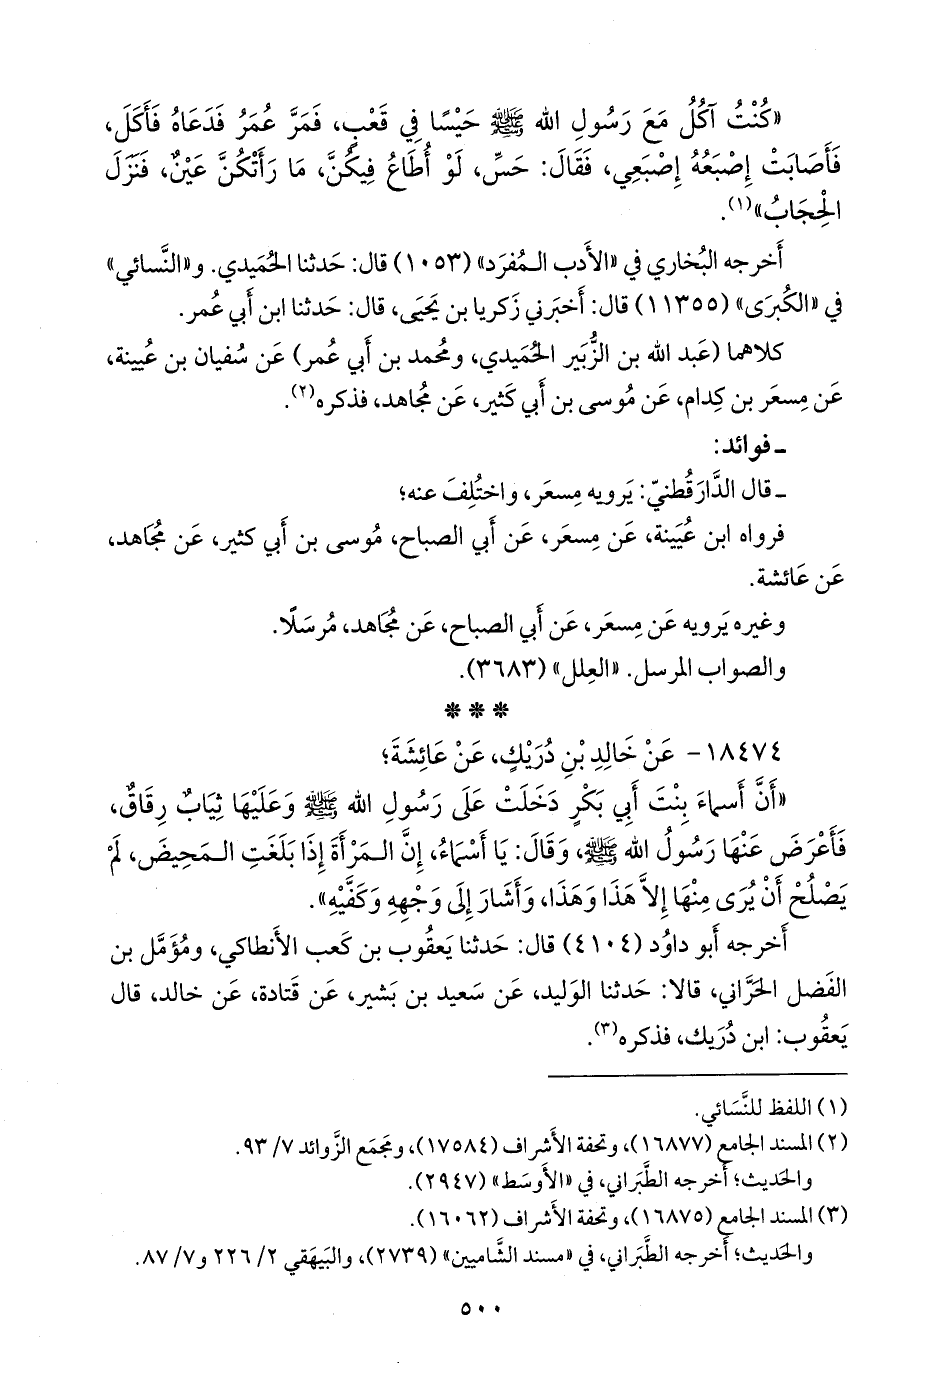 «كُنْتُ آكُلُ مَعَ رَسُولِ الله ﷺ حَيْسًا فِي قَعْبٍ، فَمَرَّ عُمَرُ فَدَعَاهُ فَأَكَلَ،
فَأَصَابَتْ إِصْبَعُهُ إِصْبَعِي، فَقَالَ: حَسِّ، لَوْ أُطَاعُ فِيكُنَّ، مَا رَأَتْكُنَّ عَيْنٌ، فَنَزَلَ
الْحِجَابُ»(١).
أَخرجه البُخاري في «الأَدب الـمُفرَد» (١٠٥٣) قال: حَدثنا الحُمَيدي. و«النَّسائي»
في «الكُبرَى» (١١٣٥٥) قال: أَخبَرني زَكريا بن يَحيَى، قال: حَدثنا ابن أَبي عُمر.
كلاهما (عَبد الله بن الزُّبَير الحُمَيدي، ومُحمد بن أَبي عُمر) عَن سُفيان بن عُيينة،
عَن مِسعَر بن كِدام، عَن مُوسى بن أَبي كَثير، عَن مُجاهد، فذكره(٢).
ـ فوائد:
ـ قال الدَّارَقُطنيّ: يَرويه مِسعَر، واختُلِفَ عنه؛
فرواه ابن عُيَينة، عَن مِسعَر، عَن أَبي الصباح، مُوسى بن أَبي كثير، عَن مُجَاهد،
عَن عَائشة.
وغيره يَرويه عَن مِسعَر، عَن أَبي الصباح، عَن مُجَاهد، مُرسَلًا.
والصواب المرسل. «العِلل» (٣٦٨٣).
* * *
١٨٤٧٤- عَنْ خَالِدِ بْنِ دُرَيْكٍ، عَنْ عَائِشَةَ؛
«أَنَّ أَسماءَ بِنْتَ أَبِي بَكْرٍ دَخَلَتْ عَلَى رَسُولِ الله ﷺ وَعَلَيْهَا ثِيَابٌ رِقَاقٌ،
فَأَعْرَضَ عَنْهَا رَسُولُ الله ﷺ، وَقَالَ: يَا أَسْمَاءُ، إِنَّ الـمَرْأَةَ إِذَا بَلَغَتِ الـمَحِيضَ، لَمْ
يَصْلُحْ أَنْ يُرَى مِنْهَا إِلاَّ هَذَا وَهَذَا، وَأَشَارَ إِلَى وَجْهِهِ وَكَفَّيْهِ».
أَخرجه أَبو داوُد (٤١٠٤) قال: حَدثنا يَعقُوب بن كَعب الأَنطاكي، ومُؤَمَّل بن
الفَضل الحَرَّاني، قالا: حَدثنا الوَليد، عَن سَعيد بن بَشير، عَن قَتادة، عَن خالد، قال
يَعقُوب: ابن دُرَيك، فذكره(٣).
(١) اللفظ للنَّسَائي.
(٢) المسند الجامع (١٦٨٧٧)، وتحفة الأَشراف (١٧٥٨٤)، ومَجمَع الزَّوائد ٧/ ٩٣.
والحَديث؛ أَخرجه الطَّبَراني، في «الأَوسَط» (٢٩٤٧).
(٣) المسند الجامع (١٦٨٧٥)، وتحفة الأَشراف (١٦٠٦٢).
والحَديث؛ أَخرجه الطَّبَراني، في «مسند الشَّاميين» (٢٧٣٩)، والبَيهَقي ٢/ ٢٢٦ و٧/ ٨٧.
٥٠٠